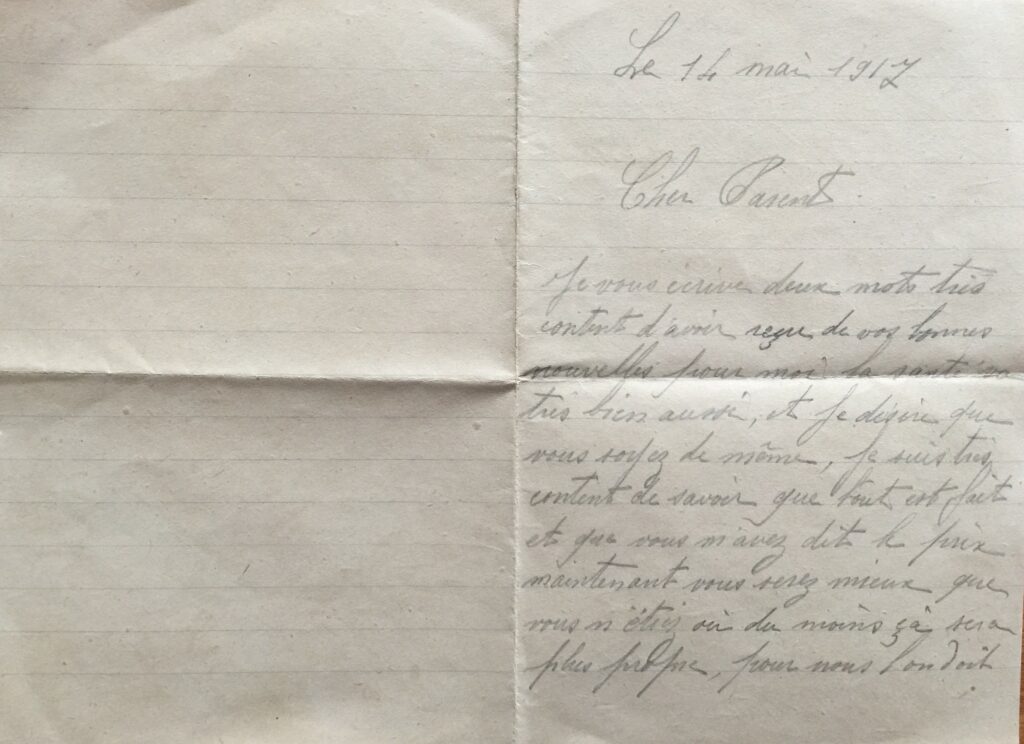 Le 14 mai 1917
Cher Parent
Je vous écrive deux mots très
content d'avoir reçu de vos bonnes
nouvelles pour moi la santé va
très bien aussi, et je désire que
vous soyez de même, je suis très
content de savoir que tout est fait
et que vous m'avez dit le prix
maintenant vous serez mieux que
vous n'étiez où du moins çà sera
plus propre, pour nous l'on doit